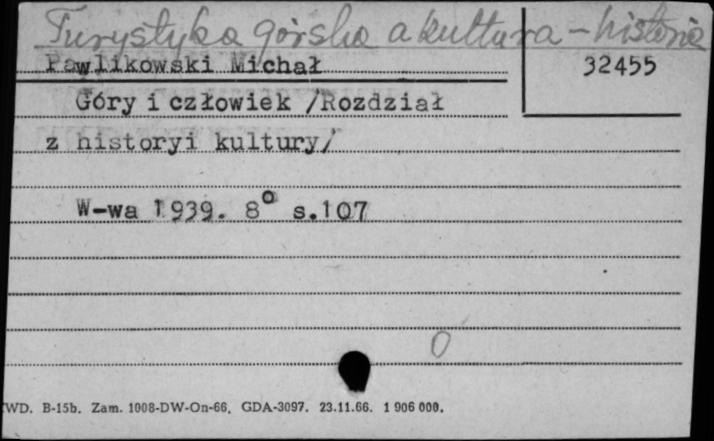 Turystyka górska a kultura - historia
Pawlikowski Michał 32455
Góry i człowiek /Rozdział
z historyi kultury/
W-wa 1939. 8° s.107
0
WD. B-15b. Zam. 1008-DW-On-66. GDA-3097. 23.11.66. 1 906 000.